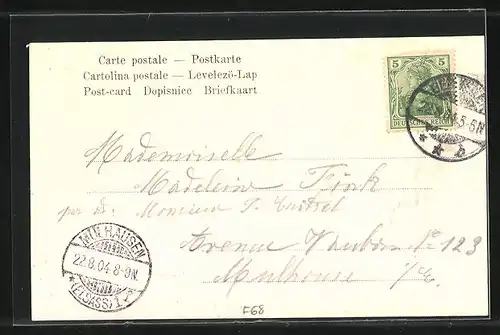 Carte postale — Postkarte
Cartolina postale — Levelezö-Lap
Post-card Dopisnice Briefkaart
5 5
DEUTSCHES REICH
5-6N
* * b
Mademoiselle
Madeleine
Monsieur
Avenue Vauban No 123
Mulhouse i/E.
MÜLHAUSEN
22.8.04.8-9N.
*(ELSASS)1
F68